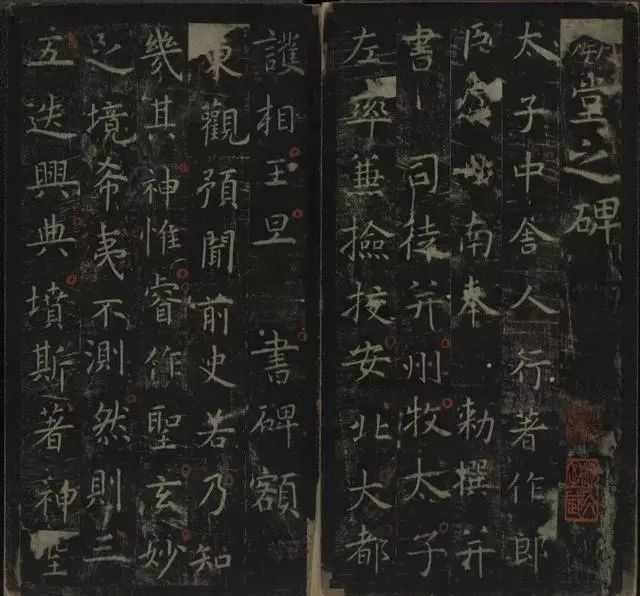 堂之碑
太子中舍人行著作郎
臣虞世南奉 勅撰并
書 司徒并州牧太子
左率兼撿挍安北大都
護相王旦 書碑額
東觀預聞前史若乃知
幾其神惟睿作聖玄妙
之境希夷不測然則三
五迭興典墳斯著神